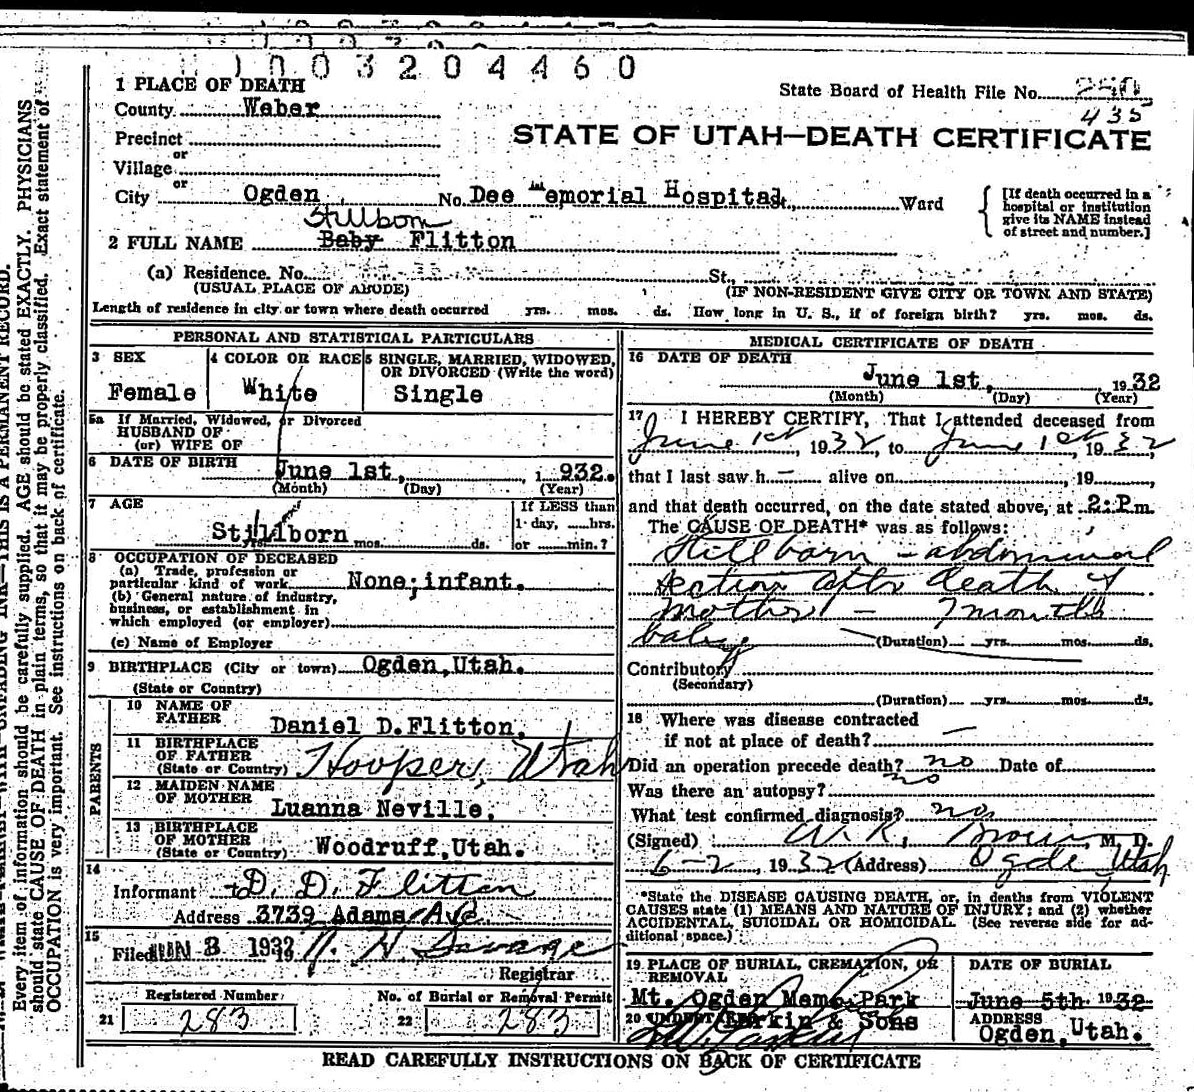 1003204460
1 PLACE OF DEATH
State Board of Health File No. 290
435
County Weber
STATE OF UTAH—DEATH CERTIFICATE
Precinct
or
Village
or
City Ogden No. Dee Memorial Hospital St., Ward
[If death occurred in a
hospital or institution
give its NAME instead
of street and number.]
Stillborn
2 FULL NAME Baby Flitton
(a) Residence. No. St.,
(USUAL PLACE OF ABODE) (IF NON-RESIDENT GIVE CITY OR TOWN AND STATE)
Length of residence in city or town where death occurred yrs. mos. ds. How long in U. S., if of foreign birth? yrs. mos. ds.
PERSONAL AND STATISTICAL PARTICULARS
3 SEX
Female
4 COLOR OR RACE
White
5 SINGLE, MARRIED, WIDOWED,
OR DIVORCED (Write the word)
Single
5a If Married, Widowed, or Divorced
HUSBAND OF
(or) WIFE OF
6 DATE OF BIRTH June 1st, 1932.
(Month) (Day) (Year)
7 AGE
Stillborn
yrs. mos. ds.
If LESS than
1 day, hrs.
or min.?
8 OCCUPATION OF DECEASED
(a) Trade, profession or
particular kind of work None; infant.
(b) General nature of industry,
business, or establishment in
which employed (or employer)
(c) Name of Employer
9 BIRTHPLACE (City or town) Ogden, Utah.
(State or Country)
PARENTS
10 NAME OF
FATHER Daniel D. Flitton,
11 BIRTHPLACE
OF FATHER
(State or Country) Hooper, Utah
12 MAIDEN NAME
OF MOTHER Luanna Neville.
13 BIRTHPLACE
OF MOTHER
(State or Country) Woodruff, Utah.
14
Informant D. D. Flitton
Address 3739 Adams Ave
15
Filed JUN 3 1932 N. H. Savage
Registrar
Registered Number
21 283
No. of Burial or Removal Permit
22 283
MEDICAL CERTIFICATE OF DEATH
16 DATE OF DEATH
June 1st, 1932
(Month) (Day) (Year)
17 I HEREBY CERTIFY, That I attended deceased from
June 1st, 1932, to June 1st 1932,
that I last saw h— alive on 19
and that death occurred, on the date stated above, at 2:P.m.
The CAUSE OF DEATH* was as follows:
Stillborn - abdominal
section after death of
mother - 7 months
baby (Duration) yrs. mos. ds.
Contributory
(Secondary)
(Duration) yrs. mos. ds.
18 Where was disease contracted
if not at place of death? —
Did an operation precede death? no Date of
Was there an autopsy? no
What test confirmed diagnosis? no
(Signed) W. R. Brown, M. D.
6-2, 1932 (Address) Ogden Utah
*State the DISEASE CAUSING DEATH, or, in deaths from VIOLENT
CAUSES state (1) MEANS AND NATURE OF INJURY; and (2) whether
ACCIDENTAL, SUICIDAL OR HOMICIDAL. (See reverse side for ad-
ditional space.)
19 PLACE OF BURIAL, CREMATION, OR
REMOVAL
Mt. Ogden Memo. Park
DATE OF BURIAL
June 5th 1932
20 UNDERTAKER Larkin & Sons
ADDRESS
Ogden, Utah.
READ CAREFULLY INSTRUCTIONS ON BACK OF CERTIFICATE
Every item of information should be carefully supplied. AGE should be stated EXACTLY. PHYSICIANS
should state CAUSE OF DEATH in plain terms, so that it may be properly classified. Exact statement of
OCCUPATION is very important. See instructions on back of certificate.